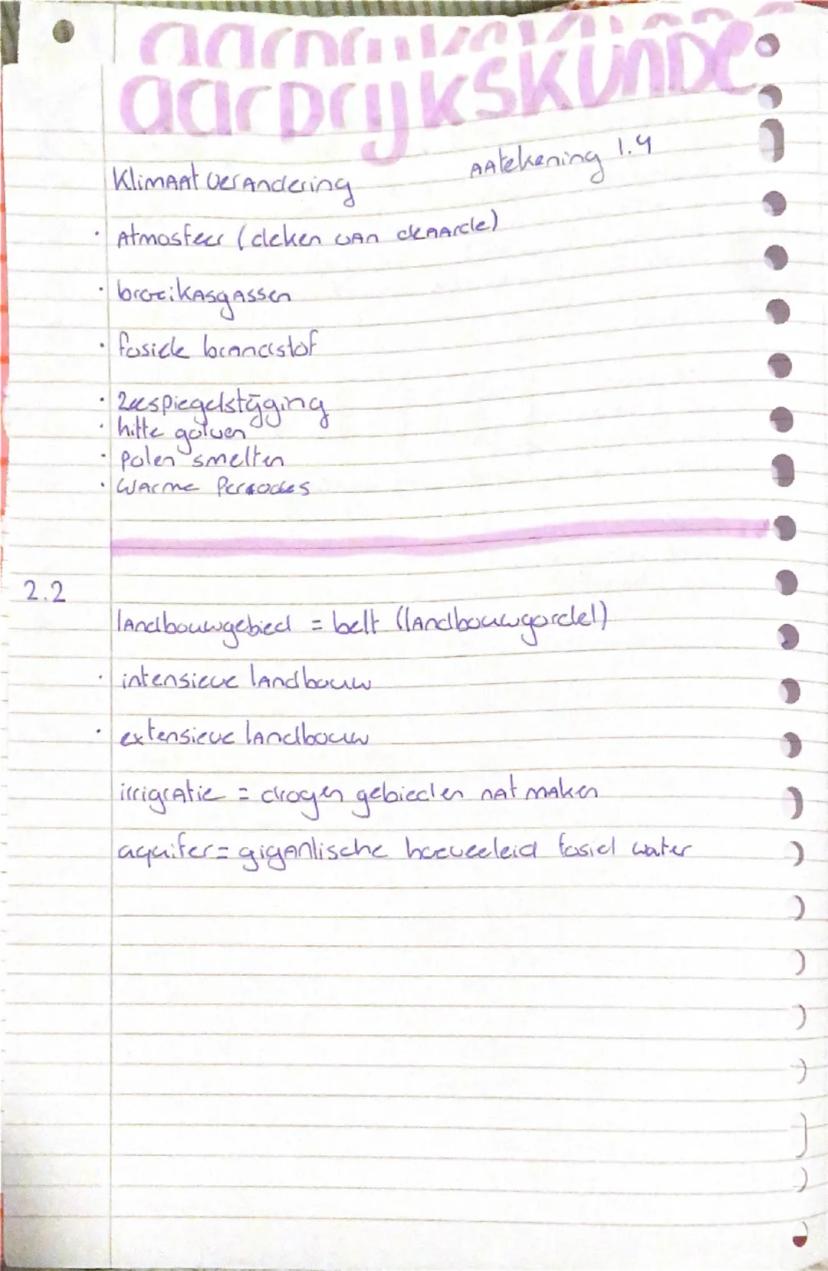 aardrijkskunde
aardrijkskunde
Klimaat verandering
Aatekening 1.4
· Atmosfeer (deken van de aarde)
· broeikasgassen
· fosiele brandstof
· Zeespiegelstijging
· hitte golven
· Polen smelten
· Warme Periodes
2.2
landbouwgebied = belt (landbouwgordel)
· intensieve landbouw
· extensieve landbouw
irrigratie = drogen gebieden nat maken
aquifer = gigantische hoeveeleid fosiel water